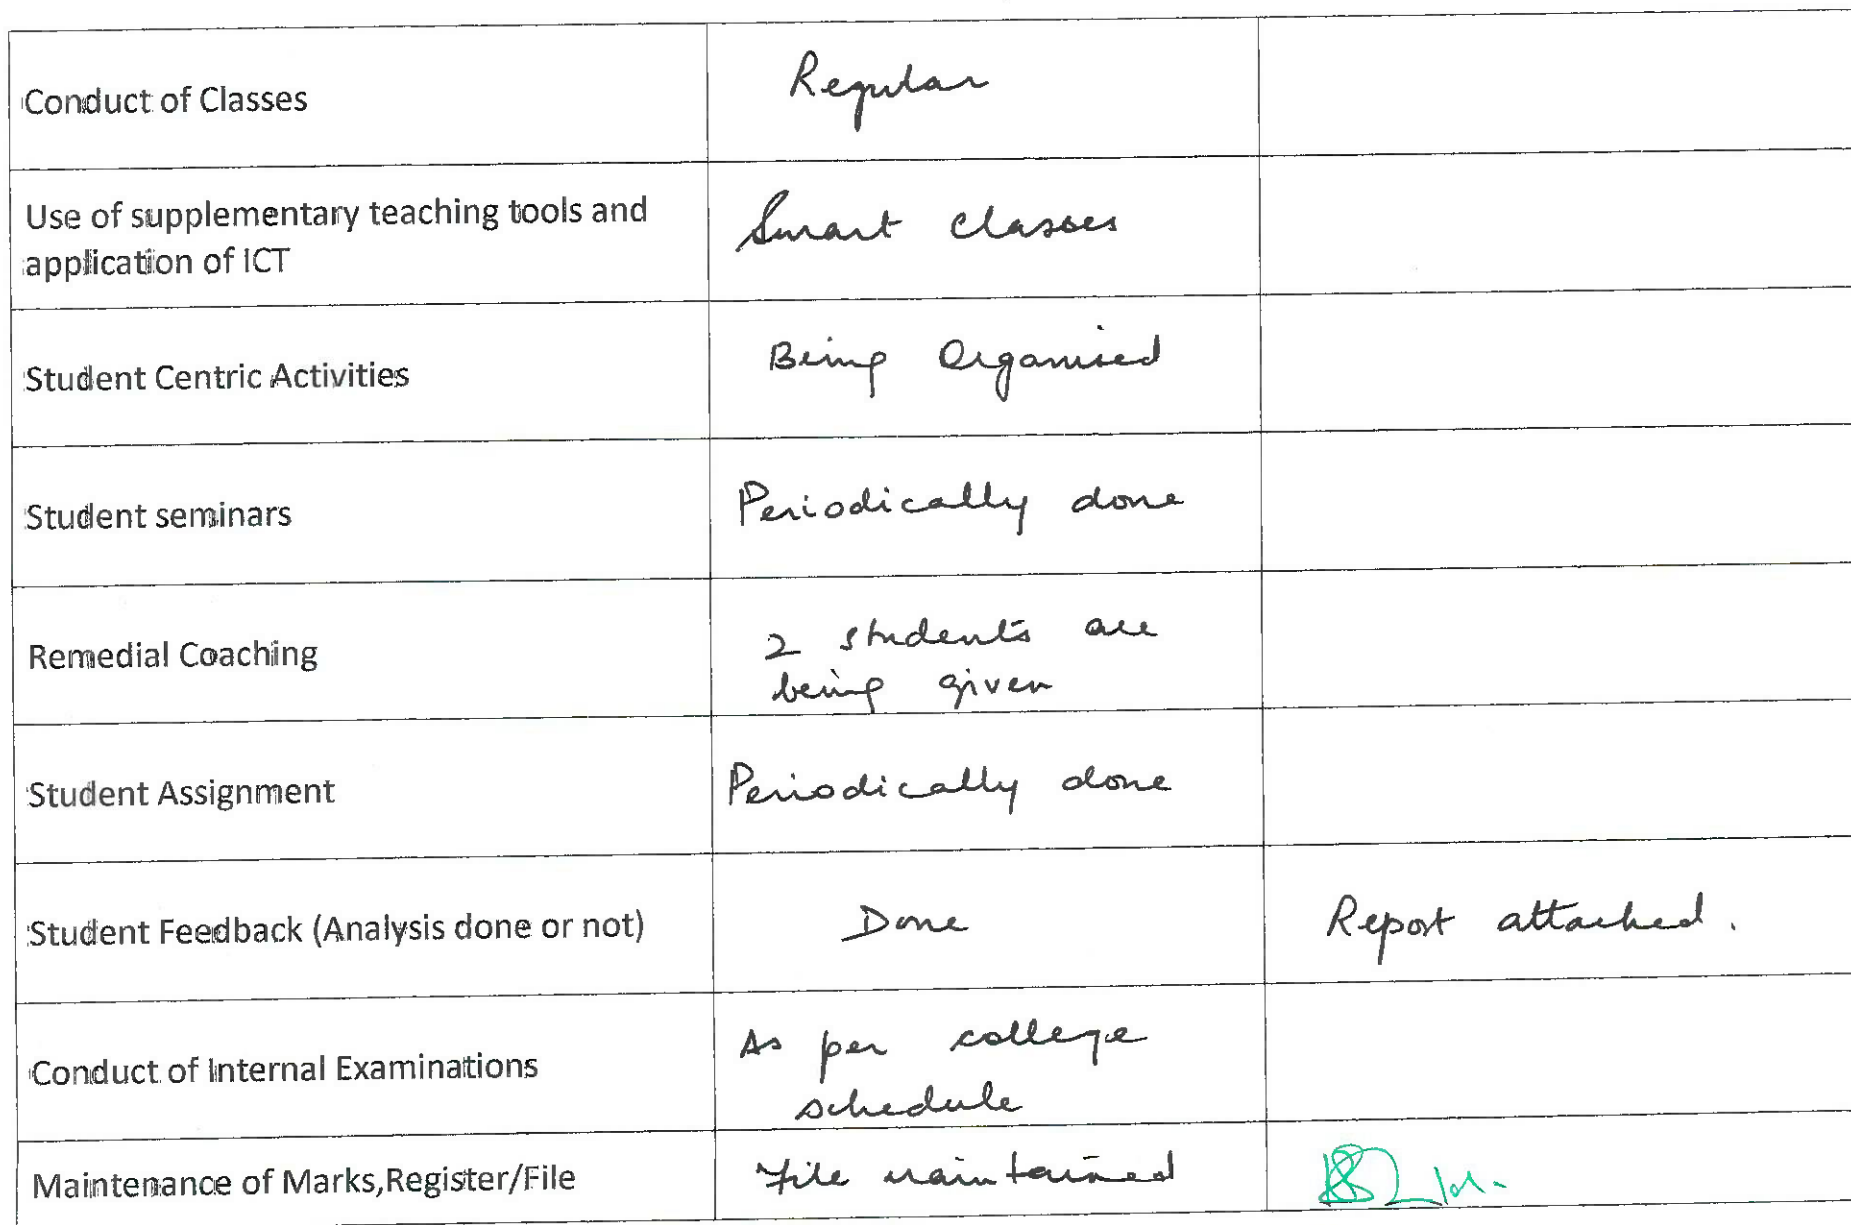 Conduct of Classes
Regular
Use of supplementary teaching tools and
application of ICT
Smart classes
Student Centric Activities
Being Organised
Student seminars
Periodically done
Remedial Coaching
2 students are
being given
Student Assignment
Periodically done
Student Feedback (Analysis done or not)
Done
Report attached.
Conduct of Internal Examinations
As per college
schedule
Maintenance of Marks,Register/File
File maintained